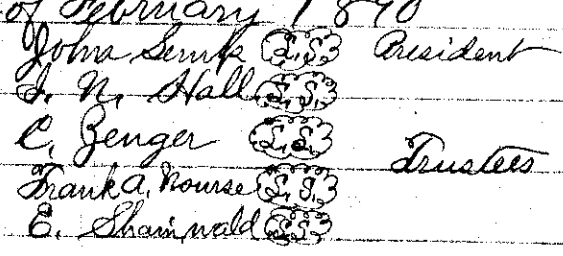 of February 1890
John Semk L.S. President
J. N. Hall L.S.
C. Zenger L.S. Trustees
Frank A. Nourse L.S.
E. Shainwald L.S.